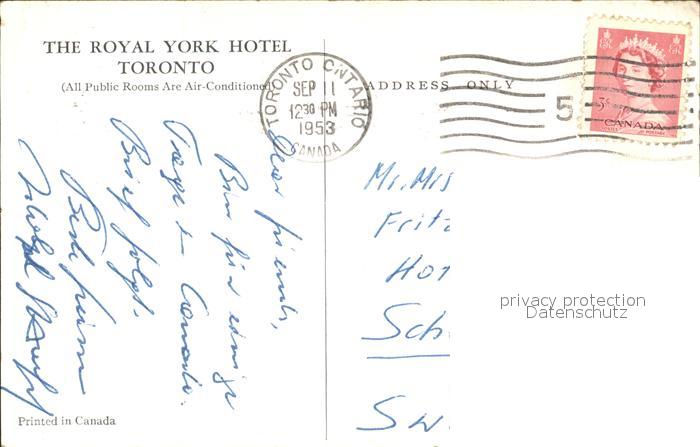 THE ROYAL YORK HOTEL
TORONTO
(All Public Rooms Are Air-Conditioned)
TORONTO ONTARIO
SEP 11
12 30 PM
1953
CANADA
ADDRESS ONLY
5
3c
CANADA
POSTES POSTAGE
Dear friends,
Bin für einige
Tage in Canada.
Brief folgt.
Mr. Mrs
Fritz
Hot
Sch
Sw
privacy protection
Datenschutz
Printed in Canada